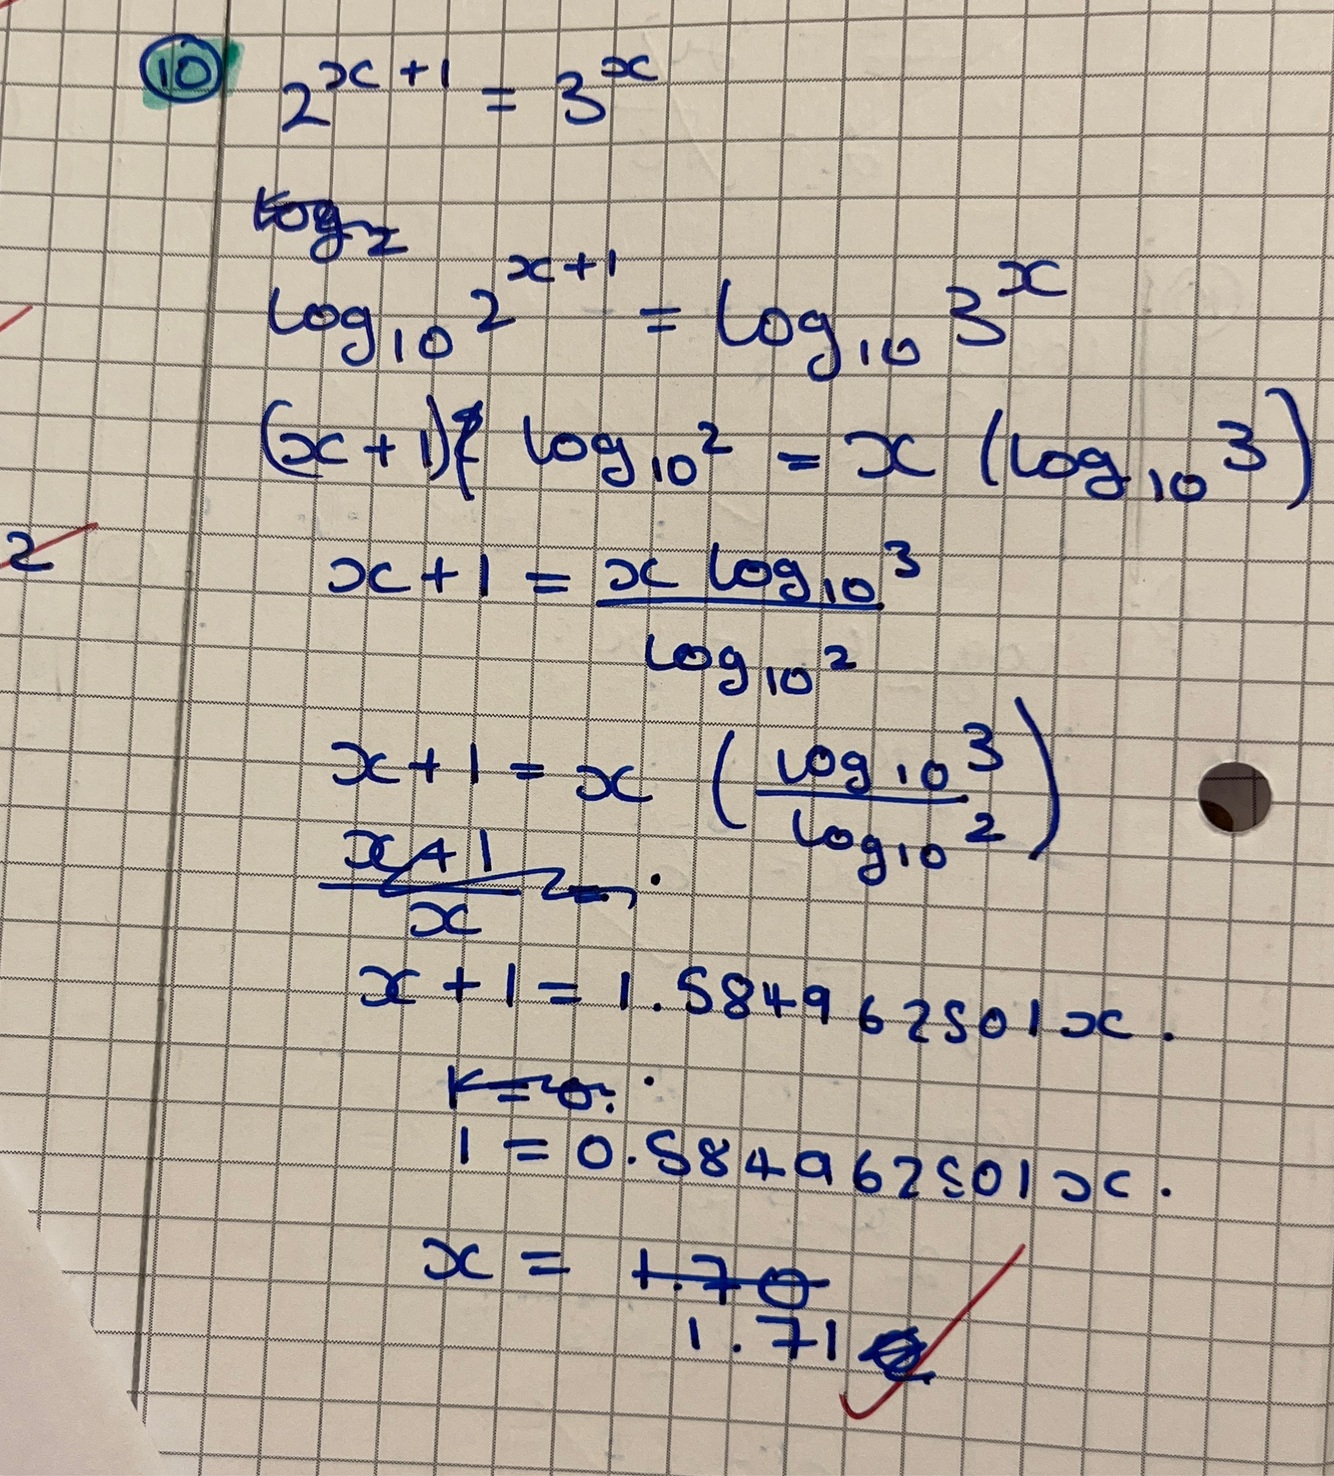 10 2^{x+1} = 3^x
log_2
log_{10} 2^{x+1} = log_{10} 3^x
(x+1) log_{10} 2 = x (log_{10} 3)
2
x+1 = \frac{x log_{10} 3}{log_{10} 2}
x+1 = x (\frac{log_{10} 3}{log_{10} 2})
\frac{x+1}{x} =
x+1 = 1.584962501x.
1=0.
1 = 0.584962501x.
x = 1.70
1.71